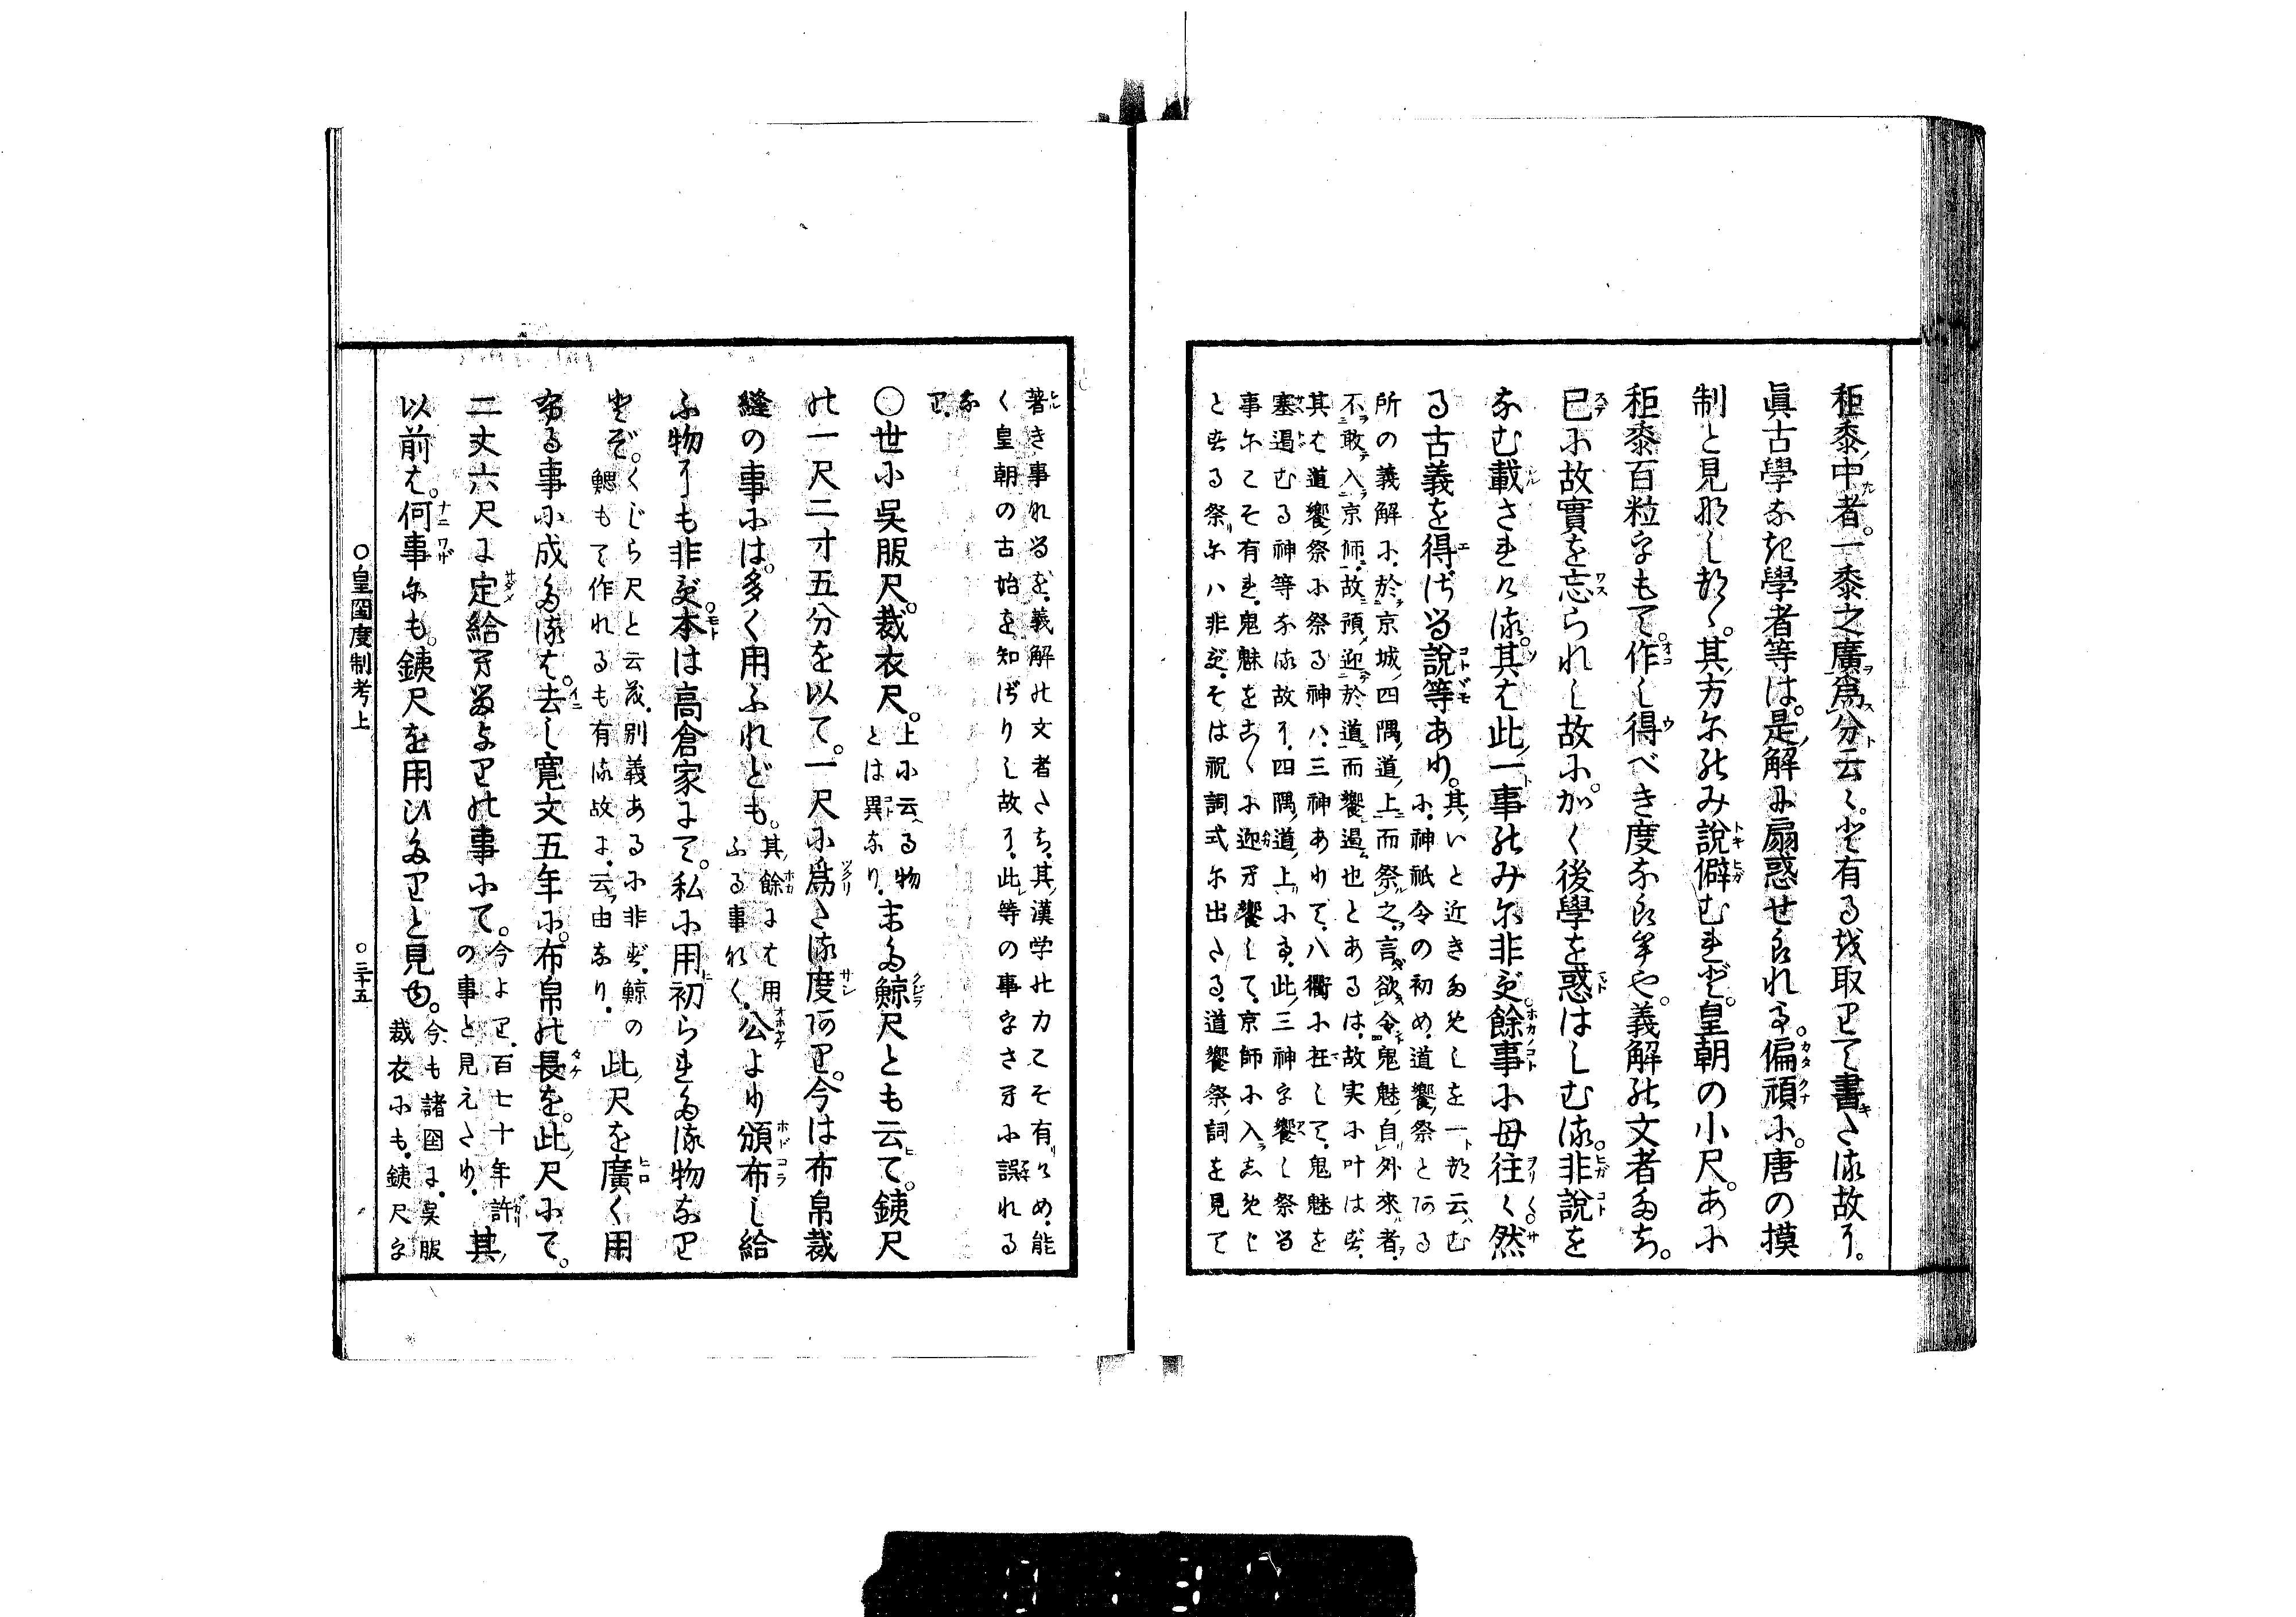 秬黍中者。一黍之廣爲分云々。と有るを取りて書きたる故に。
眞古學なき學者等は。是解に扇惑せられて。偏頑に。唐の摸
制と見なしつゝ。其方にのみ説僻むれど。皇朝の小尺。あに
秬黍百粒もて。作し得べき度ならむや。義解の文者たち。
已に故實を忘られし故に。かく後學を惑はしむる。非説を
なむ載されける。其は此一事のみに非ず。餘事にも往々然
る古義を得ざる説等あり。
其いと近きためしを一つ云はむ
に。神祇令の初め。道饗祭とある
所の義解に。於京城四隅道上而祭之。言欲令鬼魅自外來者。
不敢入京師。故預迎於道而饗遏也とあるは。故実に叶はず。
其は道饗祭に祭る神ハ。三神ありて。八衢に在して。鬼魅を
塞遏むる神等なる故に。四隅道上にて。此三神を饗し祭る
事にこそ有れ。鬼魅をこゝに迎て饗して。京師に入しめじ
とする祭にハ非ず。そは祝詞式に出たる。道饗祭詞を見て
著き事なるを。義解の文者たち。其漢学の力こそ有けめ。能
く皇朝の古始を知ざりし故に。此等の事をさへに誤れる
なり。
○世に呉服尺。裁衣尺。
上に云へる物
とは異なり。
また鯨尺とも云て。鐵尺
の一尺二寸五分を以て。一尺に爲たる度あり。今は布帛裁
縫の事には。多く用ふれども。
其餘には用
ふる事なく。
公より頒布し給
ふ物にも非ず。本は高倉家にて。私に用初られたる物なり
とぞ。
くじら尺と云は。別義あるに非ず。鯨の
鰓もて作れるも有る故に。云由なり。
此尺を廣く用
布る事に成たるは。去し寛文五年に。布帛の長を。此尺にて。
二丈六尺に定給へるよりの事にて。
今より。百七十年許
の事と見えたり。
其
以前は。何事にも。鐵尺を用ひたりと見ゆ。
今も諸國に。呉服
裁衣にも。鐵尺を
○皇國度制考上
○三十五